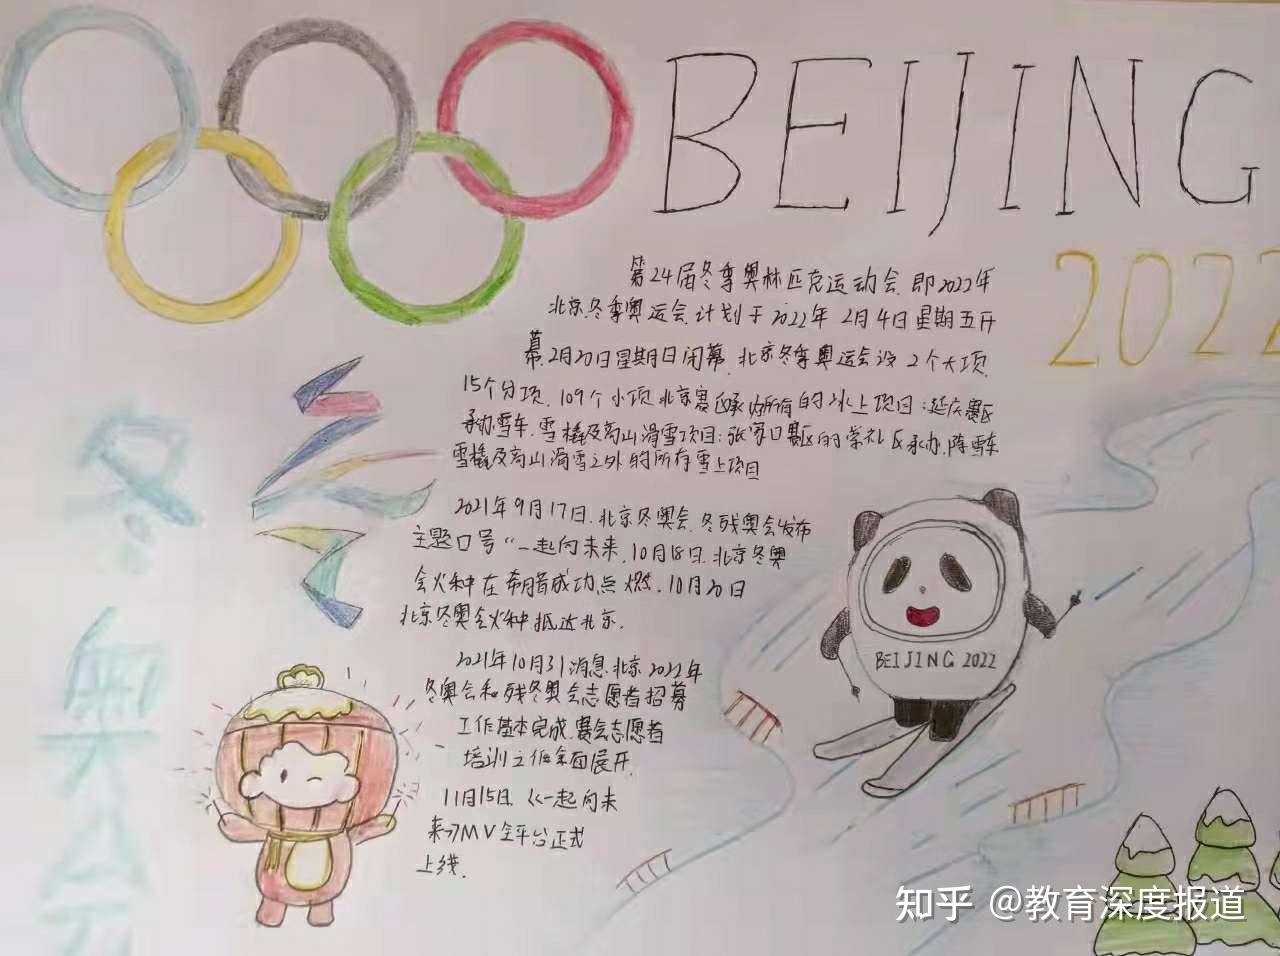 BEIJING
2022
冬奥会
第24届冬季奥林匹克运动会,即2022年
北京冬季奥运会,计划于2022年2月4日星期五开
幕,2月20日星期日闭幕,北京冬季奥运会设2个大项,
15个分项,109个小项,北京赛区承办所有的冰上项目;延庆赛区
承办雪车、雪橇及高山滑雪项目;张家口赛区的崇礼区承办,除雪车
雪橇及高山滑雪之外的所有雪上项目
2021年9月17日,北京冬奥会、冬残奥会发布
主题口号“一起向未来,10月18日,北京冬奥
会火种在希腊成功点燃,10月20日
北京冬奥会火种抵达北京.
2021年10月31消息,北京2022年
冬奥会和残冬奥会志愿者招募
工作基本完成,赛会志愿者
培训工作全面展开,
11月15日,《一起向未
来》MV全平台正式
上线.
BEIJING 2022
知乎 @教育深度报道